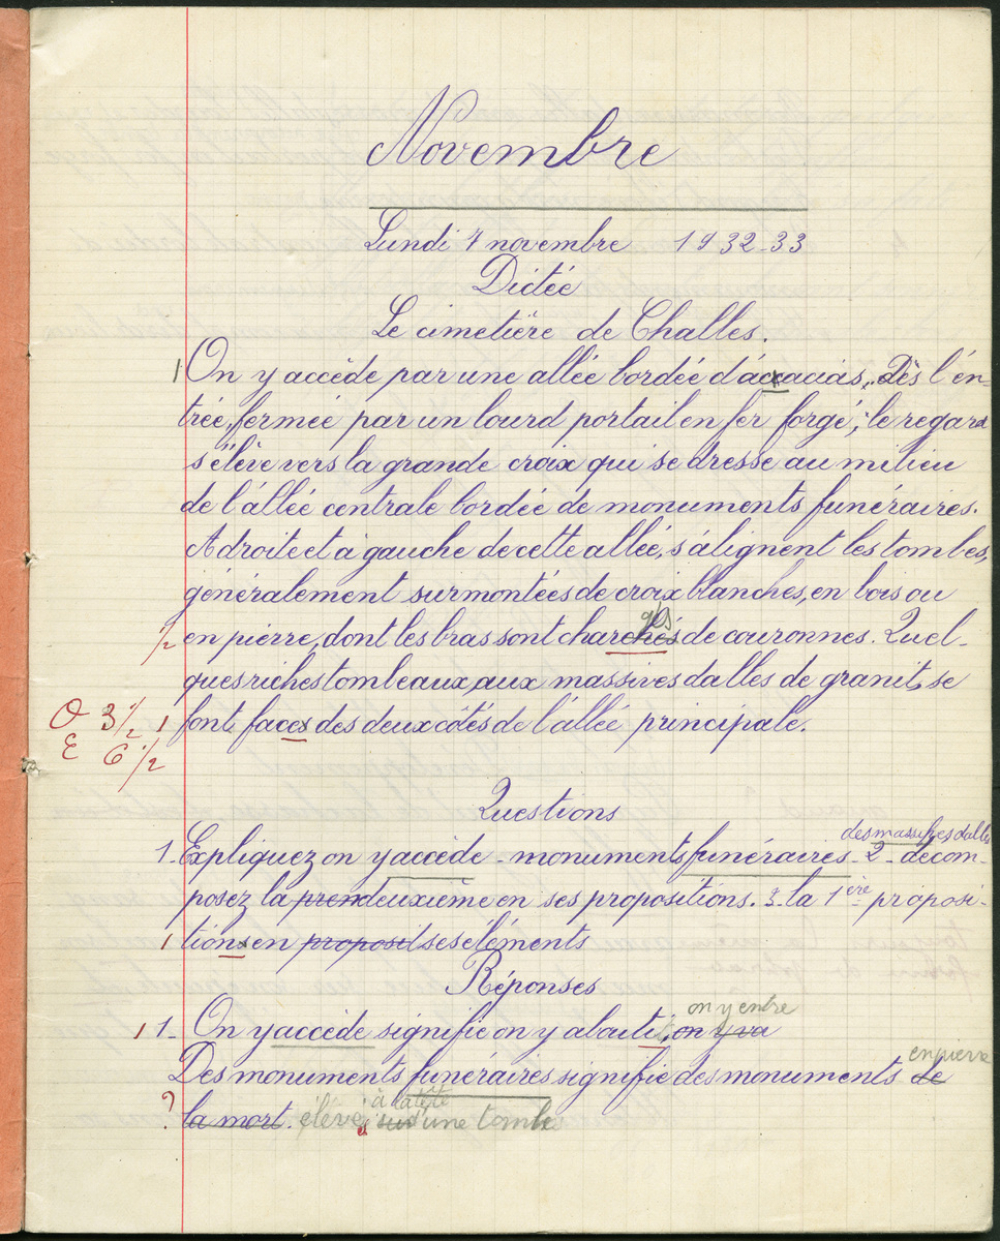 Novembre
Lundi 7 novembre 1932-33
Dictée
Le cimetière de Challes.
1 On y accède par une allée bordée d'accacias. Dès l'en-
trée, fermée par un lourd portail en fer forgé, le regard
s'élève vers la grande croix qui se dresse au milieu
de l'allée centrale bordée de monuments funéraires.
A droite et à gauche de cette allée, s'alignent les tombes,
généralement surmontées de croix blanches, en bois ou
gés
1/2 en pierre, dont les bras sont charchés de couronnes. Quel-
ques riches tombeaux, aux massives dalles de granit, se
O 3 1/2 1 font faces des deux côtés de l'allée principale.
E 6 1/2
Questions
des massives dalles
1. Expliquez on y accède - monuments funéraires - 2 - décom-
posez la prem deuxième en ses propositions. 3. la 1ère proposi-
1 tions en proposit ses éléments
Réponses
on y entre
1 1 - On y accède signifie on y abouti, on y va
en pierre
Des monuments funéraires signifie des monuments de
à la tête
? la mort. élevé sur d'une tombe